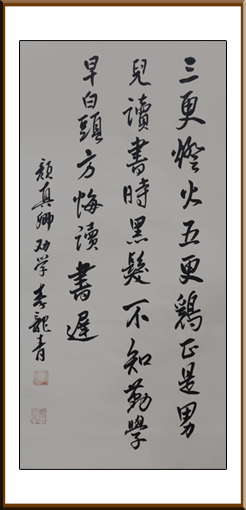 三更燈火五更鷄正是男
兒讀書時黑髮不知勤學
早白頭方悔讀書遲
顏真卿劝学 李龍青